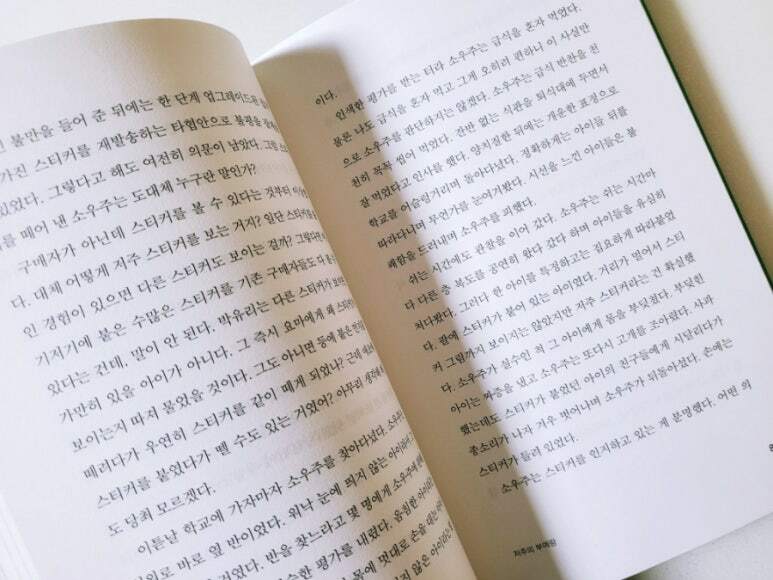 불만을 들어 준 뒤에는 한 단계 업그레이드된
가진 스티커를 재발송하는 타협안으로 불평을
있었다. 그렇다고 해도 여전히 의문이 남았다. 그럼
를 떼어 낸 소우주는 도대체 누구란 말인가?
구매자가 아닌데 스티커를 볼 수 있다는 것부터
다. 대체 어떻게 저주 스티커를 보는 거지? 일단 스티커를
인 경험이 있으면 다른 스티커도 보이는 걸까? 그렇다면
기지기에 붙은 수많은 스티커를 기존 구매자들도 다
있다는 건데, 말이 안 된다. 박유리는 다른 스티커가
가만히 있을 아이가 아니다. 그 즉시 요마에게 왜 스티커
보이는지 따져 물었을 것이다. 그도 아니면 등에 붙은
때리다가 우연히 스티커를 같이 떼게 되었나? 근데
스티커를 붙였다가 뗄 수도 있는 거였어? 아무리 생각해
도 당최 모르겠다.
이튿날 학교에 가자마자 소우주를 찾아다녔다. 소우주
바로 옆 반이었다. 워낙 눈에 띄지 않는 아이라
반을 찾느라고 몇 명에게 소우주에
평가를 내렸다. 음침한 아이라
목에 멋대로 손을 대는
않은 아이라
이다.
인색한 평가를 받는 터라 소우주는 급식을 혼자 먹었다.
물론 나도 급식을 혼자 먹고 그게 오히려 편하니 이 사실만
으로 소우주를 판단하지는 않겠다. 소우주는 급식 반찬을 천
천히 꼭꼭 씹어 먹었다. 잔반 없는 식판을 퇴식대에 두면서
잘 먹었다고 인사를 했다. 양치질한 뒤에는 개운한 표정으로
학교를 어슬렁거리며 돌아다녔다. 정확하게는 아이들 뒤를
따라다니며 무언가를 눈여겨봤다. 시선을 느낀 아이들은 불
쾌함을 드러내며 소우주를 피했다.
쉬는 시간에도 관찰을 이어 갔다. 소우주는 쉬는 시간마
다 다른 층 복도를 공연히 왔다 갔다 하며 아이들을 유심히
쳐다봤다. 그러다 한 아이를 특정하고는 집요하게 따라붙었
다. 팔에 스티커가 붙어 있는 아이였다. 거리가 멀어서 스티
커 그림까지 보이지는 않았지만 저주 스티커라는 건 확실했
다. 소우주가 실수인 척 그 아이에게 몸을 부딪쳤다. 부딪힌
아이는 짜증을 냈고 소우주는 또다시 고개를 조아렸다. 사과
했는데도 스티커가 붙었던 아이의 친구들에게 시달리다가
종소리가 나자 겨우 벗어나며 소우주가 뒤돌아섰다. 손에는
스티커가 들려 있었다.
소우주는 스티커를 인지하고 있는 게 분명했다. 어떤 의
저주의 부메랑